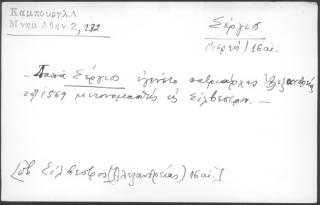 Καμπουργλ. Λ
Μνημ. Αθην. 2, 132
Σέργιος
(Ιερεύς) 16 αἰ.
— Παπᾶ Σέργιος ἐγένετο πατριάρχης Ἀλεξανδρείας
1569 μετονομασθεὶς εἰς Σίλβεστρον. —
[πβ Σίλβεστρος (Ἀλεξανδρείας) 16 αἰ.]